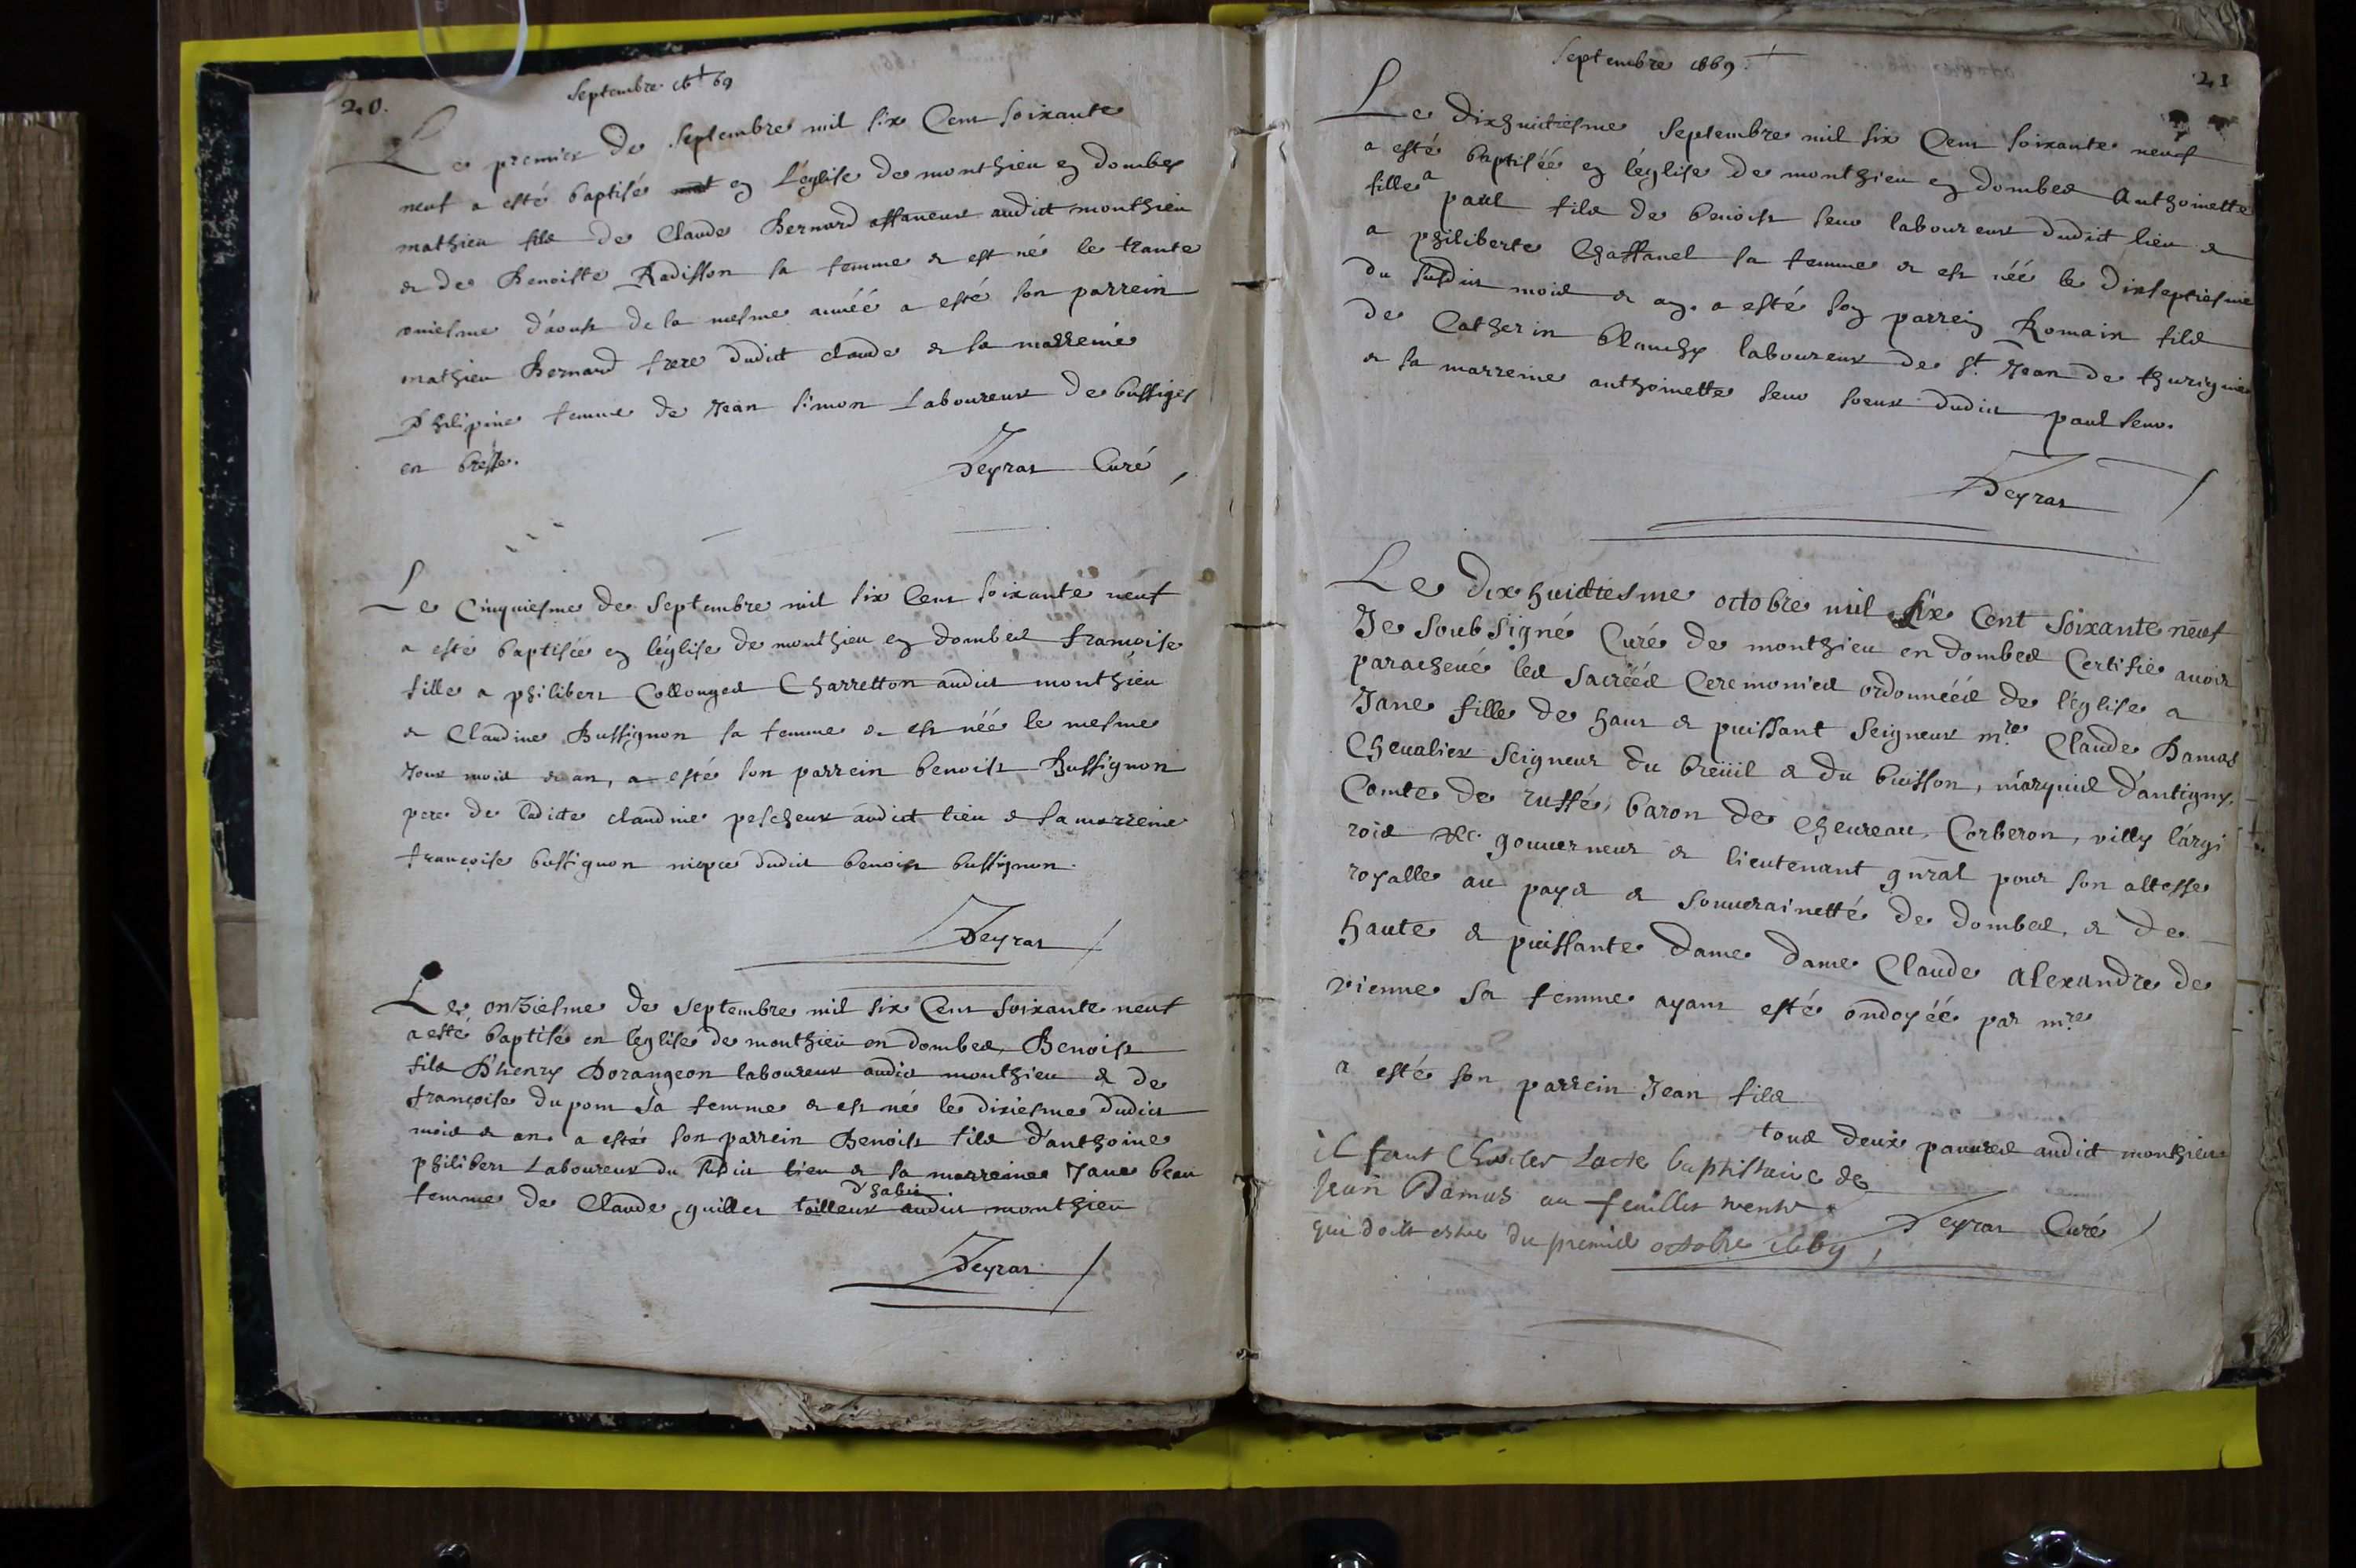 20.
Septembre 1669
Le premier de Septembre mil six Cent soixante
neuf a esté baptisé en L'église de monthieu en dombes
mathieu fils de Claude Bernard affaneur audict monthieu
& de Benoiste Radisson sa femme & est né le trante
uniesme d'aoust de la mesme année a esté son parrein
mathieu Bernard frere dudict claude & sa marreine
Philipine femme de Jean Simon Laboureur de bussiges
en bresse.
Deyras Curé
Le Cinquiesme de Septembre mil six Cent soixante neuf
a esté baptisée en léglise de monthieu en dombes françoise
fille a philibert Collonges Charretton audict monthieu
& Claudine Bussignon sa femme & est née le mesme
Jour mois & an, a esté son parrein benoist Bussignon
pere de ladicte claudine pescheur audict lieu & sa marreine
françoise bussignon niepce dudict benoist bussignon.
Deyras
Le onziesme de Septembre mil six Cent soixante neuf
a esté baptisé en léglise de monthieu en dombes, Benoist
fils D'henry Dorangeon laboureur audict monthieu & de
françoise dupont sa femme & est né le dixiesme dudict
mois & an. a esté son parrein Benoist fils d'anthoine
philibert Laboureur du susdict lieu & sa marreine Jane beau
d'habits
femme de Claude guillet tailleur audict monthieu
Deyras
Septembre 1669.
21
Le dixhuictiesme Septembre mil six Cent soixante neuf
a esté baptisée en léglise de monthieu en dombes Anthoinette
fille a paul fils de benoist seuv laboureur dudict lieu &
a philiberte Chaffanel sa femme & est née le dixseptiesme
du susdict mois & an. a esté son parrein Romain fils
de Catherin blanchy laboureur de St Jean de thurigneu
& sa marreine anthoinette seuv soeur dudict paul seuv.
Deyras
Le dixhuictiesme octobre mil six Cent soixante neuf
Je soubsigné Curé de monthieu en dombes Certifie auoir
paracheué les sacréés Ceremonies ordonnéés de l'église a
Jane fille de haut & puissant Seigneur mre Claude Damas
Cheualier Seigneur du breüil & du buisson, marquis d'antigny,
Comte de ruffé, baron de cheureau, Corberon, villy l'argi
rois &c gouuerneur & lieutenant gnral pour son altesse
royalle au pays & souuerainetté de dombes, & de
haute & puissante dame dame Claude alexandre de
vienne sa femme ayant esté ondoyéé par mre
a esté son parrein Jean fils
tous deux pauures audict monthieu
il faut Chercher Lacte baptistaire de
Jean Damas au feuillet trente
qui doit estre du premier octobre 1669
Deyras Curé